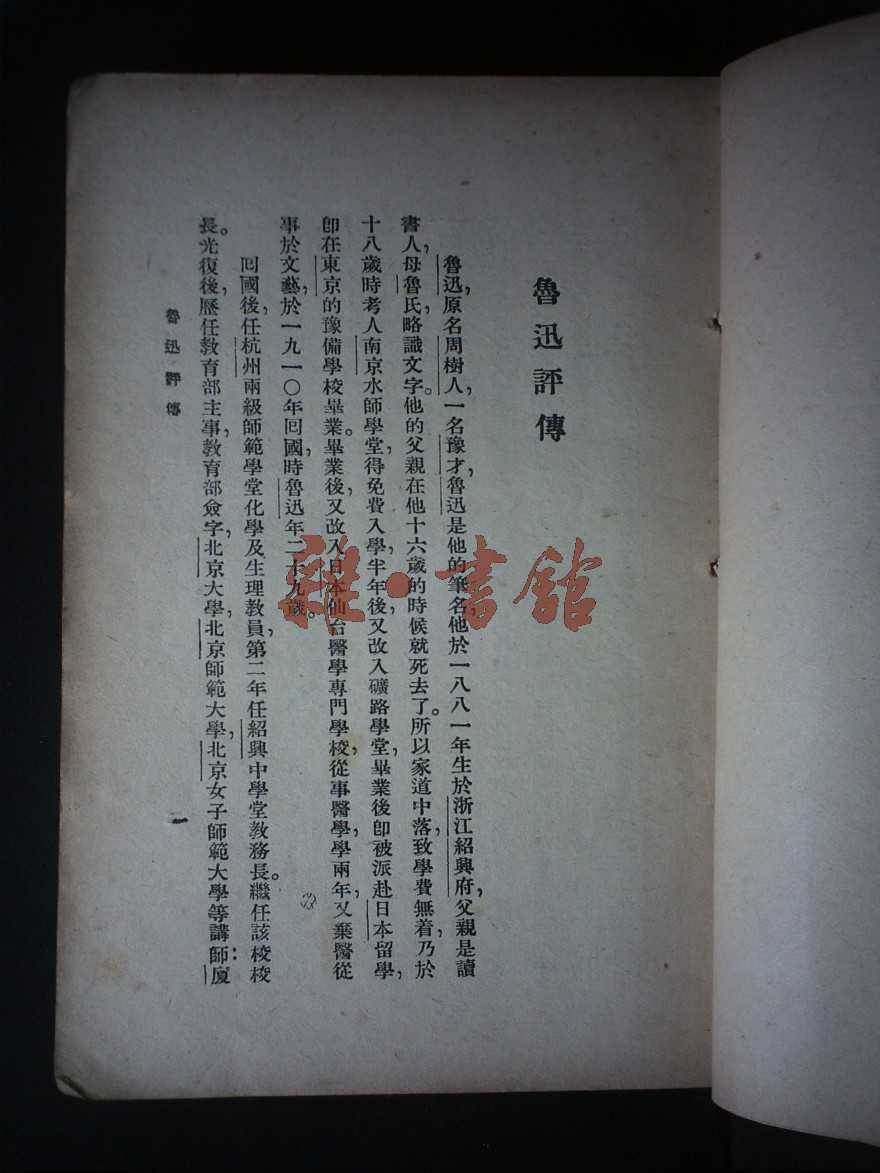 魯迅評傳
魯迅，原名周樹人，一名豫才，魯迅是他的筆名，他於一八八一年生於浙江紹興府，父親是讀
書人，母魯氏略識文字。他的父親在他十六歲的時候就死去了。所以家道中落，致學費無着，乃於
十八歲時考人南京水師學堂，得免費入學，半年後，又改入礦路學堂，畢業後卽被派赴日本留學，
卽在東京的豫備學校畢業。畢業後，又改入日本仙台醫學專門學校，從事醫學，學兩年，又棄醫從
事於文藝，於一九一〇年囘國，時魯迅年二十九歲。
囘國後，任杭州兩級師範學堂化學及生理教員，第二年任紹興中學堂教務長。繼任該校校
長。光復後，歷任教育部主事，教育部僉字，北京大學，北京師範大學，北京女子師範大學等講師：廈
魯迅評傳
一
雜·書館